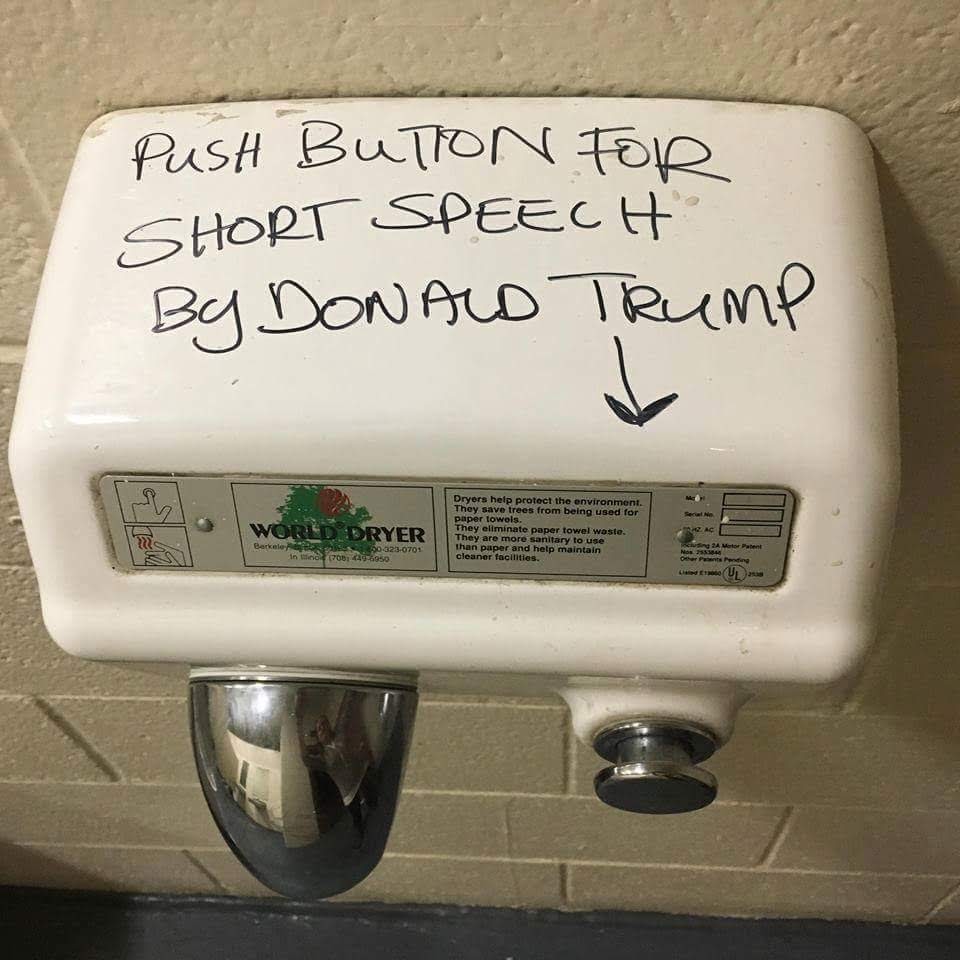 PUSH BUTTON FOR
SHORT SPEECH
By DONALD TRUMP
WORLD DRYER
Berkeley
In Illinois (708) 449-6950
Dryers help protect the environment.
They save trees from being used for
paper towels.
They eliminate paper towel waste.
They are more sanitary to use
than paper and help maintain
cleaner facilities.
Serial No.
HZ. AC
Including 2A Motor Patent
Nos. 2553846
Other Patents Pending
Listed
UL